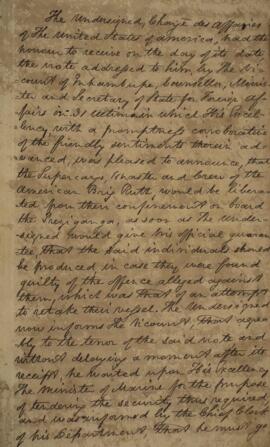 The Undersigned, Chargé des Affaires
of The United States of America, had the
honour to receive on the day of its date
the note addressed to him, by The Vis-
count of Inhambupe, Counsellor, Minis-
ter and Secretary of State for Foreign Af-
fairs in 31 ultimain which His Excel-
lency, with a promptness corroborative
of the friendly sentiments therein ad-
vanced, was pleased to announce, that
the Supercargo, Master and crew of the
American Brig Ruth would be libera-
ted from their confinement on board
the Piranga, as soon as the Under-
signed would give his official guaran-
tee, that the said individuals should
be produced in case they were found
guilty of the offence alleged against
them, which was that of an attempt
to retake their vessel. The Undersigned
now informs the Viscount, that agrea-
bly to the tenor of the said note and
without delaying a moment after its
receipt, he waited upon His Excellency
The Minister of Marine for the purpose
of tendering the security thus required
and was informed by the Chief Clerk
of his Department that he must go